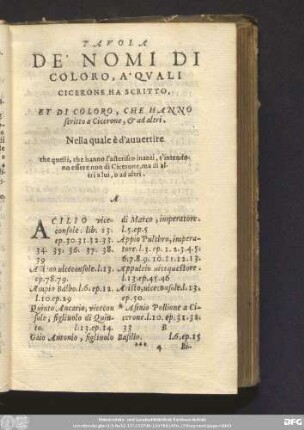 TAVOLA
DE' NOMI DI
COLORO, A' QVALI
CICERONE HA SCRITTO,
ET DI COLORO, CHE HANNO
scritto a Cicerone, & ad altri.
Nella quale è d'auuertire
che quelli, che hanno l'asterisco inanzi, s'intendo-
no essere non di Cicerone, ma di al-
tri a lui, o ad altri.
A
ACILIO vice-
console. lib. 13.
ep. 30. 31. 32. 33.
34. 35. 36. 37. 38.
39
viceconsole. l. 13.
ep. 78. 79.
Ampio Balbo. l. 6. ep. 12.
l. 10. ep. 29
Quinto Ancario, vicecon
sole, figliuolo di Quin-
to. l. 13. ep. 14.
Gaio Antonio, figliuolo
di Marco, imperatore.
l. 5. ep. 5
Appio Pulchro, impera-
tore. l. 3. ep. 1. 2. 3. 4. 5.
6. 7. 8. 9. 10. 11. 12. 13.
Appuleio vicequestore.
l. 13. ep. 45. 46
viceconsole. l. 13.
ep. 50.
* Asinio Pollione a Ci-
cerone. l. 10. ep. 31. 32.
33
B
Basilio. l. 6. ep. 15
4 Bi-